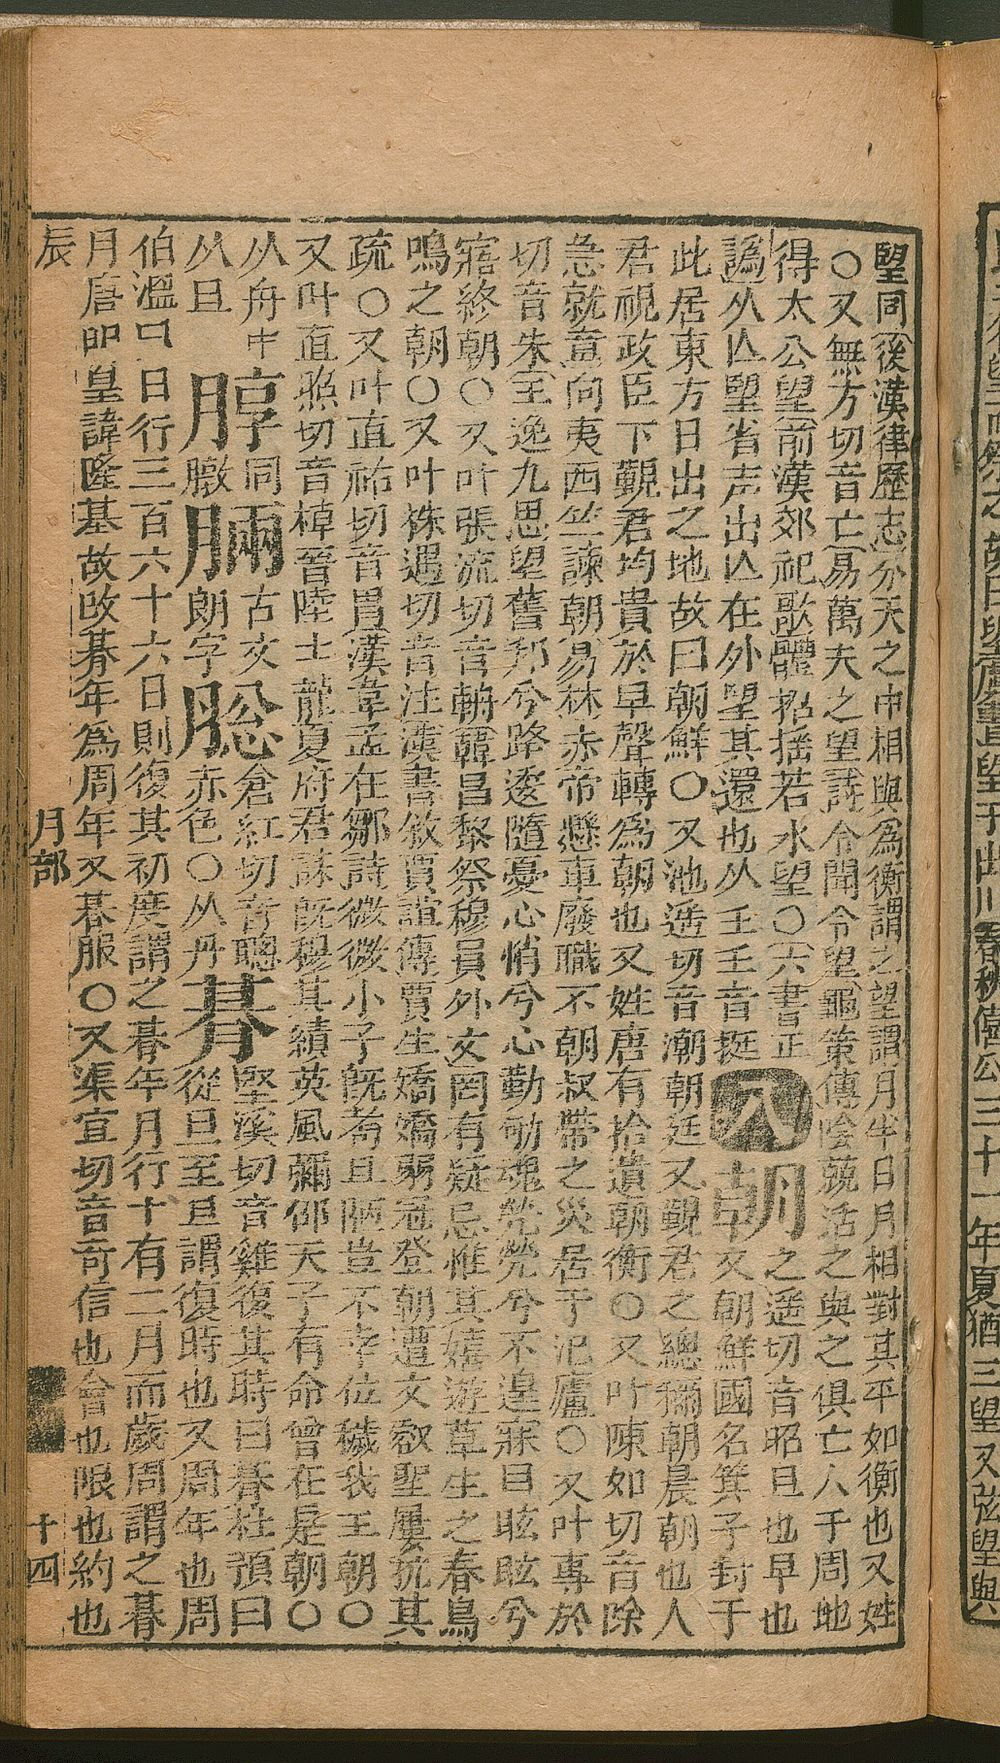 朢同後漢律歷志分天之中相與為衡謂之望謂月半日月相對其平如衡也又姓
○又無方切音亡易萬夫之望詩令聞令望龜策傳陰兢活之與之俱亡入于周地
得太公望前漢郊祀歌體招搖若水望○六書正
譌从亾朢省声出亾在外望其還也从壬壬音挺
八
朝
之遥切音昭旦也早也
又朝鮮國名箕子封于
此居東方日出之地故曰朝鮮○又池遥切音潮朝廷又覲君之總稱朝晨朝也人
君視政臣下覲君均貴於早聲轉為朝也又姓唐有拾遺朝衡○又叶陳如切音除
急就章向夷西竺諫朝易林赤帝懸車廢職不朝叔帶之災居于汜廬○又叶專於
切音朱王逸九思望舊邦兮路逶隨憂心悄兮心勤劬魂煢煢兮不遑寐目眩眩兮
寤終朝○又叶張流切音輈韓昌黎祭穆員外文罔有疑忌惟其嬉遊草生之春鳥
鳴之朝○又叶株遇切音注漢書敘賈誼傳賈生矯矯弱冠登朝遭文叡聖屢抗其
疏○又叶直祐切音胄漢韋孟在鄒詩微微小子旣耇且陋豈不幸位穢我王朝○
又叶直照切音棹晉陸士龍夏府君誄旣穆其績英風彌仰天子有命曾在是朝○
从舟中
从旦
朜
同
朣
古文
朗字
倉紅切音聰
赤色○从丹
朞
堅溪切音雞復其時曰朞杜預曰
從旦至旦謂復時也又周年也周
伯溫曰日行三百六十六日則復其初度謂之朞年月行十有二月而歲周謂之朞
月唐明皇諱隆基故改朞年為周年又朞服○又渠宜切音奇信也會也限也約也
辰
月部
十四
之故曰望
望于
春秋僖公三十一年夏猶三望又弦望與